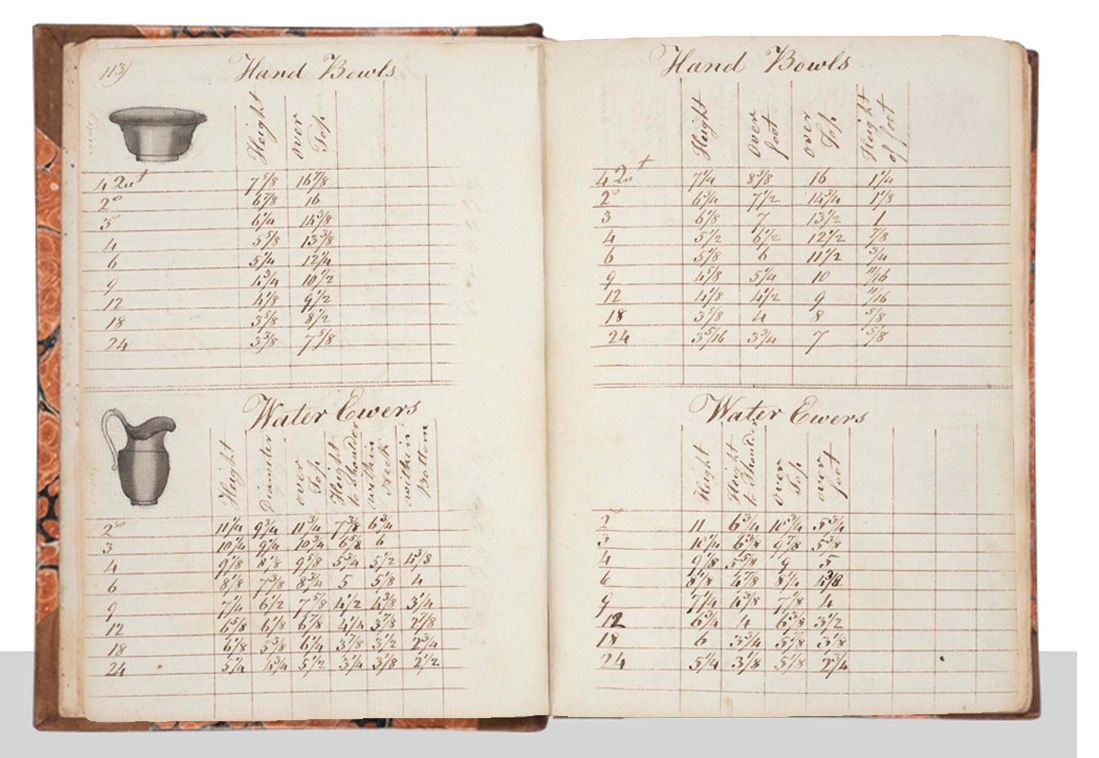 113
Hand Bowls
Height over Top
4 7 7/8 16 7/8
2 6 7/8 16
3 6 1/4 14 5/8
4 5 5/8 13 3/8
6 5 1/4 12 1/4
9 4 3/4 10 1/2
12 4 1/8 9 1/2
18 3 5/8 8 1/2
24 3 3/8 7 5/8
Water Ewers
Height Diameter over Top Height to Shoulder within Neck within Bottom
2 11 1/4 9 3/4 11 3/4 7 3/8 6 3/4
3 10 1/4 9 1/4 10 3/4 6 5/8 6
4 9 1/8 8 1/8 9 5/8 5 3/4 5 1/2 4 3/8
6 8 1/8 7 3/8 8 3/4 5 5 1/8 4
9 7 1/4 6 1/2 7 5/8 4 1/2 4 3/8 3 1/4
12 6 5/8 6 1/8 6 7/8 4 1/4 3 7/8 2 7/8
18 6 1/8 5 3/8 6 1/4 3 7/8 3 1/2 2 3/4
24 5 1/4 4 3/4 5 1/2 3 1/4 3 1/8 2 1/2
Hand Bowls
Height over foot over Top Height of foot
4 7 1/4 8 3/8 16 1 1/4
2 6 3/4 7 1/2 14 3/4 1 1/8
3 6 1/8 7 13 1/2 1
4 5 1/2 6 1/2 12 1/2 7/8
6 5 1/8 6 11 1/2 3/4
9 4 5/8 5 1/4 10 11/16
12 4 1/8 4 1/2 9 11/16
18 3 5/8 4 8 5/8
24 3 5/16 3 3/4 7 5/8
Water Ewers
Height Height to Shoulder over Top over foot
2 11 6 3/4 10 3/4 5 3/4
3 10 1/4 6 3/8 9 7/8 5 3/8
4 9 1/8 5 5/8 9 5
6 8 1/8 4 7/8 8 1/4 4 3/8
9 7 1/4 4 3/8 7 1/8 4
12 6 3/4 4 6 3/8 3 1/2
18 6 3 3/4 5 7/8 3 1/8
24 5 1/4 3 1/8 5 1/8 2 3/4